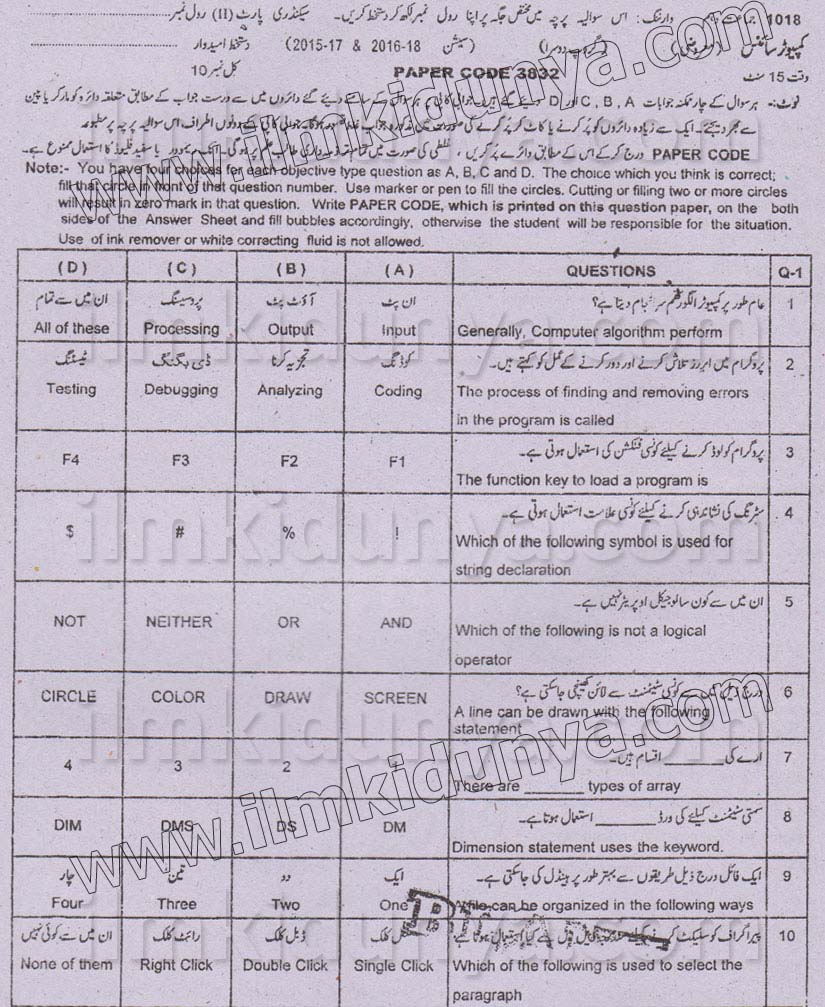 1018 جماعت دہم وارننگ: اس سوالیہ پرچہ میں مختص جگہ پر اپنا رول نمبر لکھ کر دستخط کریں۔ سیکنڈری پارٹ (II) رول نمبر
کمپیوٹر سائنس (معروضی) (گروپ دوسرا) (سیشن 2015-17 & 2016-18) دستخط امیدوار
وقت 15 منٹ PAPER CODE 3832 کل نمبر 10
نوٹ:- ہر سوال کے چار ممکنہ جوابات C, B, A اور D دیئے گئے ہیں۔ جوابی کاپی پر ہر سوال کے سامنے دیئے گئے دائروں میں سے درست جواب کے مطابق متعلقہ دائرہ کو مارکر یا پین
سے بھر دیجئے۔ ایک سے زیادہ دائروں کو پُر کرنے یا کاٹ کر پُر کرنے کی صورت میں مذکورہ جواب غلط تصور ہوگا۔ جوابی کاپی کے دونوں اطراف، اس سوالیہ پرچہ پر مطبوعہ
PAPER CODE درج کر کے اس کے مطابق دائرے پُر کریں، غلطی کی صورت میں تمام تر ذمہ داری طالب علم پر ہوگی۔ انک ریموور یا سفید فلیوڈ کا استعمال ممنوع ہے۔
Note:- You have four choices for each objective type question as A, B, C and D. The choice which you think is correct;
fill that circle in front of that question number. Use marker or pen to fill the circles. Cutting or filling two or more circles
will result in zero mark in that question. Write PAPER CODE, which is printed on this question paper, on the both
sides of the Answer Sheet and fill bubbles accordingly, otherwise the student will be responsible for the situation.
Use of ink remover or white correcting fluid is not allowed.
(D) (C) (B) (A) QUESTIONS Q-1
ان میں سے تمام پروسیسنگ آؤٹ پٹ ان پٹ عام طور پر کمپیوٹر الگورتھم سرانجام دیتا ہے؟ 1
All of these Processing Output Input Generally, Computer algorithm perform
ٹیسٹنگ ڈی بگنگ تجزیہ کرنا کوڈنگ پروگرام میں ایررز تلاش کرنے اور دور کرنے کے عمل کو کہتے ہیں۔ 2
Testing Debugging Analyzing Coding The process of finding and removing errors
in the program is called
پروگرام کو لوڈ کرنے کیلئے کونسی فنکشن کی استعمال ہوتی ہے۔ 3
F4 F3 F2 F1 The function key to load a program is
سٹرنگ کی نشاندہی کرنے کیلئے کونسی علامت استعمال ہوتی ہے۔ 4
$ # % ! Which of the following symbol is used for
string declaration
ان میں سے کون سا لوجیکل اوپریٹر نہیں ہے۔ 5
NOT NEITHER OR AND Which of the following is not a logical
operator
درج ذیل میں سے کونسی سٹیٹمنٹ سے لائن کھینچی جاسکتی ہے؟ 6
CIRCLE COLOR DRAW SCREEN A line can be drawn with the following
statement
ارے کی ______ اقسام ہیں۔ 7
4 3 2 1 There are ______ types of array
سمتی سٹیٹمنٹ کیلئے کی ورڈ ______ استعمال ہوتا ہے۔ 8
DIM DMS DS DM Dimension statement uses the keyword.
چار تین دو ایک ایک فائل درج ذیل طریقوں سے بہتر طور پر ہینڈل کی جاسکتی ہے۔ 9
Four Three Two One A file can be organized in the following ways
ان میں سے کوئی نہیں رائٹ کلک ڈبل کلک سنگل کلک پیراگراف کو سلیکٹ کرنے کیلئے استعمال ہوتا ہے 10
None of them Right Click Double Click Single Click Which of the following is used to select the
paragraph
www.ilmkidunya.com
www.ilmkidunya.com
ilmkidunya.com
ilmkidunya.com
ilmkidunya.com
ilmkidunya.com
ilmkidunya.com